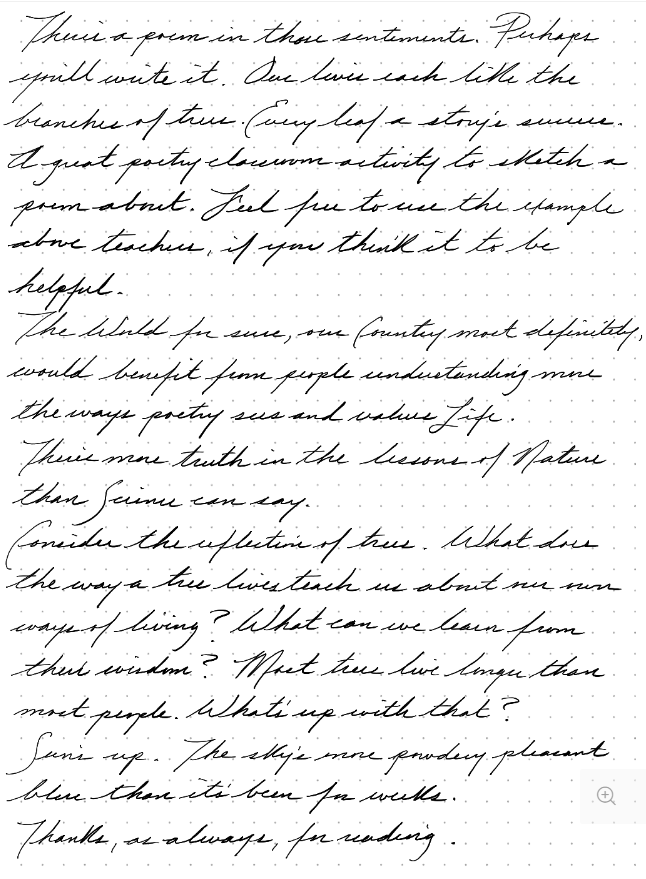 There's a poem in those sentiments. Perhaps
you'll write it. Our lives each like the
branches of trees. Every leaf a story's success.
A great poetry classroom activity to sketch a
poem about. Feel free to use the example
above teachers, if you think it to be
helpful.
The World for sure, our Country most definitely,
would benefit from people understanding more
the ways poetry sees and values Life.
There's more truth in the lessons of Nature
than Science can say.
Consider the reflection of trees. What does
the way a tree lives teach us about our own
ways of living? What can we learn from
their wisdom? Most trees live longer than
most people. What's up with that?
Sun's up. The sky's more powdery pleasant
blue than it's been for weeks.
Thanks, as always, for reading.